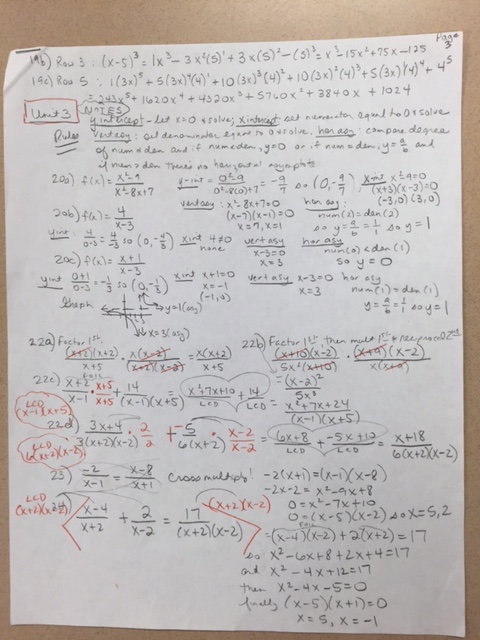 Page 3
19b) Row 3: (x-5)³ = 1x³ - 3x²(5)¹ + 3x(5)² - (5)³ = x³ - 15x² + 75x - 125
19c) Row 5: 1(3x)⁵ + 5(3x)⁴(4)¹ + 10(3x)³(4)² + 10(3x)²(4)³ + 5(3x)¹(4)⁴ + 4⁵
= 243x⁵ + 1620x⁴ + 4320x³ + 5760x² + 3840x + 1024
Unit 3 NOTES
Rules y intercept - let x=0 & solve, x intercept set numerator equal to 0 & solve
vert asy: set denominator equal to 0 & solve. hor asy: compare degree
of num & den and if num<den, y=0 or if num=den, y=a/b and
if num>den there's no horizontal asymptote
20a) f(x) = x²-9/x²-8x+7 y-int = 0²-9/0²-8(0)+7 = -9/7 so (0, -9/7) x int x²-9=0
(x+3)(x-3)=0
(-3,0) (3,0)
vert asy: x²-8x+7=0
(x-7)(x-1)=0
x=7, x=1
hor asy:
num(2)=den(2)
so y=a/b=1/1 so y=1
20b) f(x) = 4/x-3
yint: 4/0-3 = 4/-3 so (0, -4/3) x int 4≠0 none
vert asy x-3=0 x=3
hor asy num(0)<den(1) so y=0
20c) f(x) = x+1/x-3
yint 0+1/0-3 = -1/3 so (0, -1/3) x int x+1=0 x=-1 (-1,0)
vert asy x-3=0 x=3
hor asy num(1)=den(1) y=a/b=1/1 so y=1
Graph y=1(asy)
x=3(asy)
22a) Factor 1st. (x+2)(x+2)/x+5 · x(x-2)/(x+2)(x-2) = x(x+2)/x+5
22b) Factor 1st, then mult 1st & reciprocal 2nd
(x+10)(x-2)/5x²(x+10) · (x+9)(x-2)/x(x+9)
= (x-2)²/5x³
22c) x+2/x-1 · x+5/x+5 + 14/(x-1)(x+5) = x²+7x+10/LCD + 14/LCD = x²+7x+24/(x-1)(x+5)
LCD (x-1)(x+5)
22d) 3x+4/3(x+2)(x-2) · 2/2 + -5/6(x+2) · x-2/x-2 = 6x+8/LCD + -5x+10/LCD = x+18/6(x+2)(x-2)
LCD 6(x+2)(x-2)
23) -2/x-1 = x-8/x+1 cross multiply! -2(x+1)=(x-1)(x-8)
-2x-2 = x²-9x+8
0=x²-7x+10
0=(x-5)(x-2) so x=5,2
LCD (x+2)(x-2)
x-4/x+2 + 2/x-2 = 17/(x+2)(x-2) (x+2)(x-2)
=(x-4)(x-2)+2(x+2)=17
so x²-6x+8+2x+4=17
and x²-4x+12=17
then x²-4x-5=0
finally (x-5)(x+1)=0
x=5, x=-1